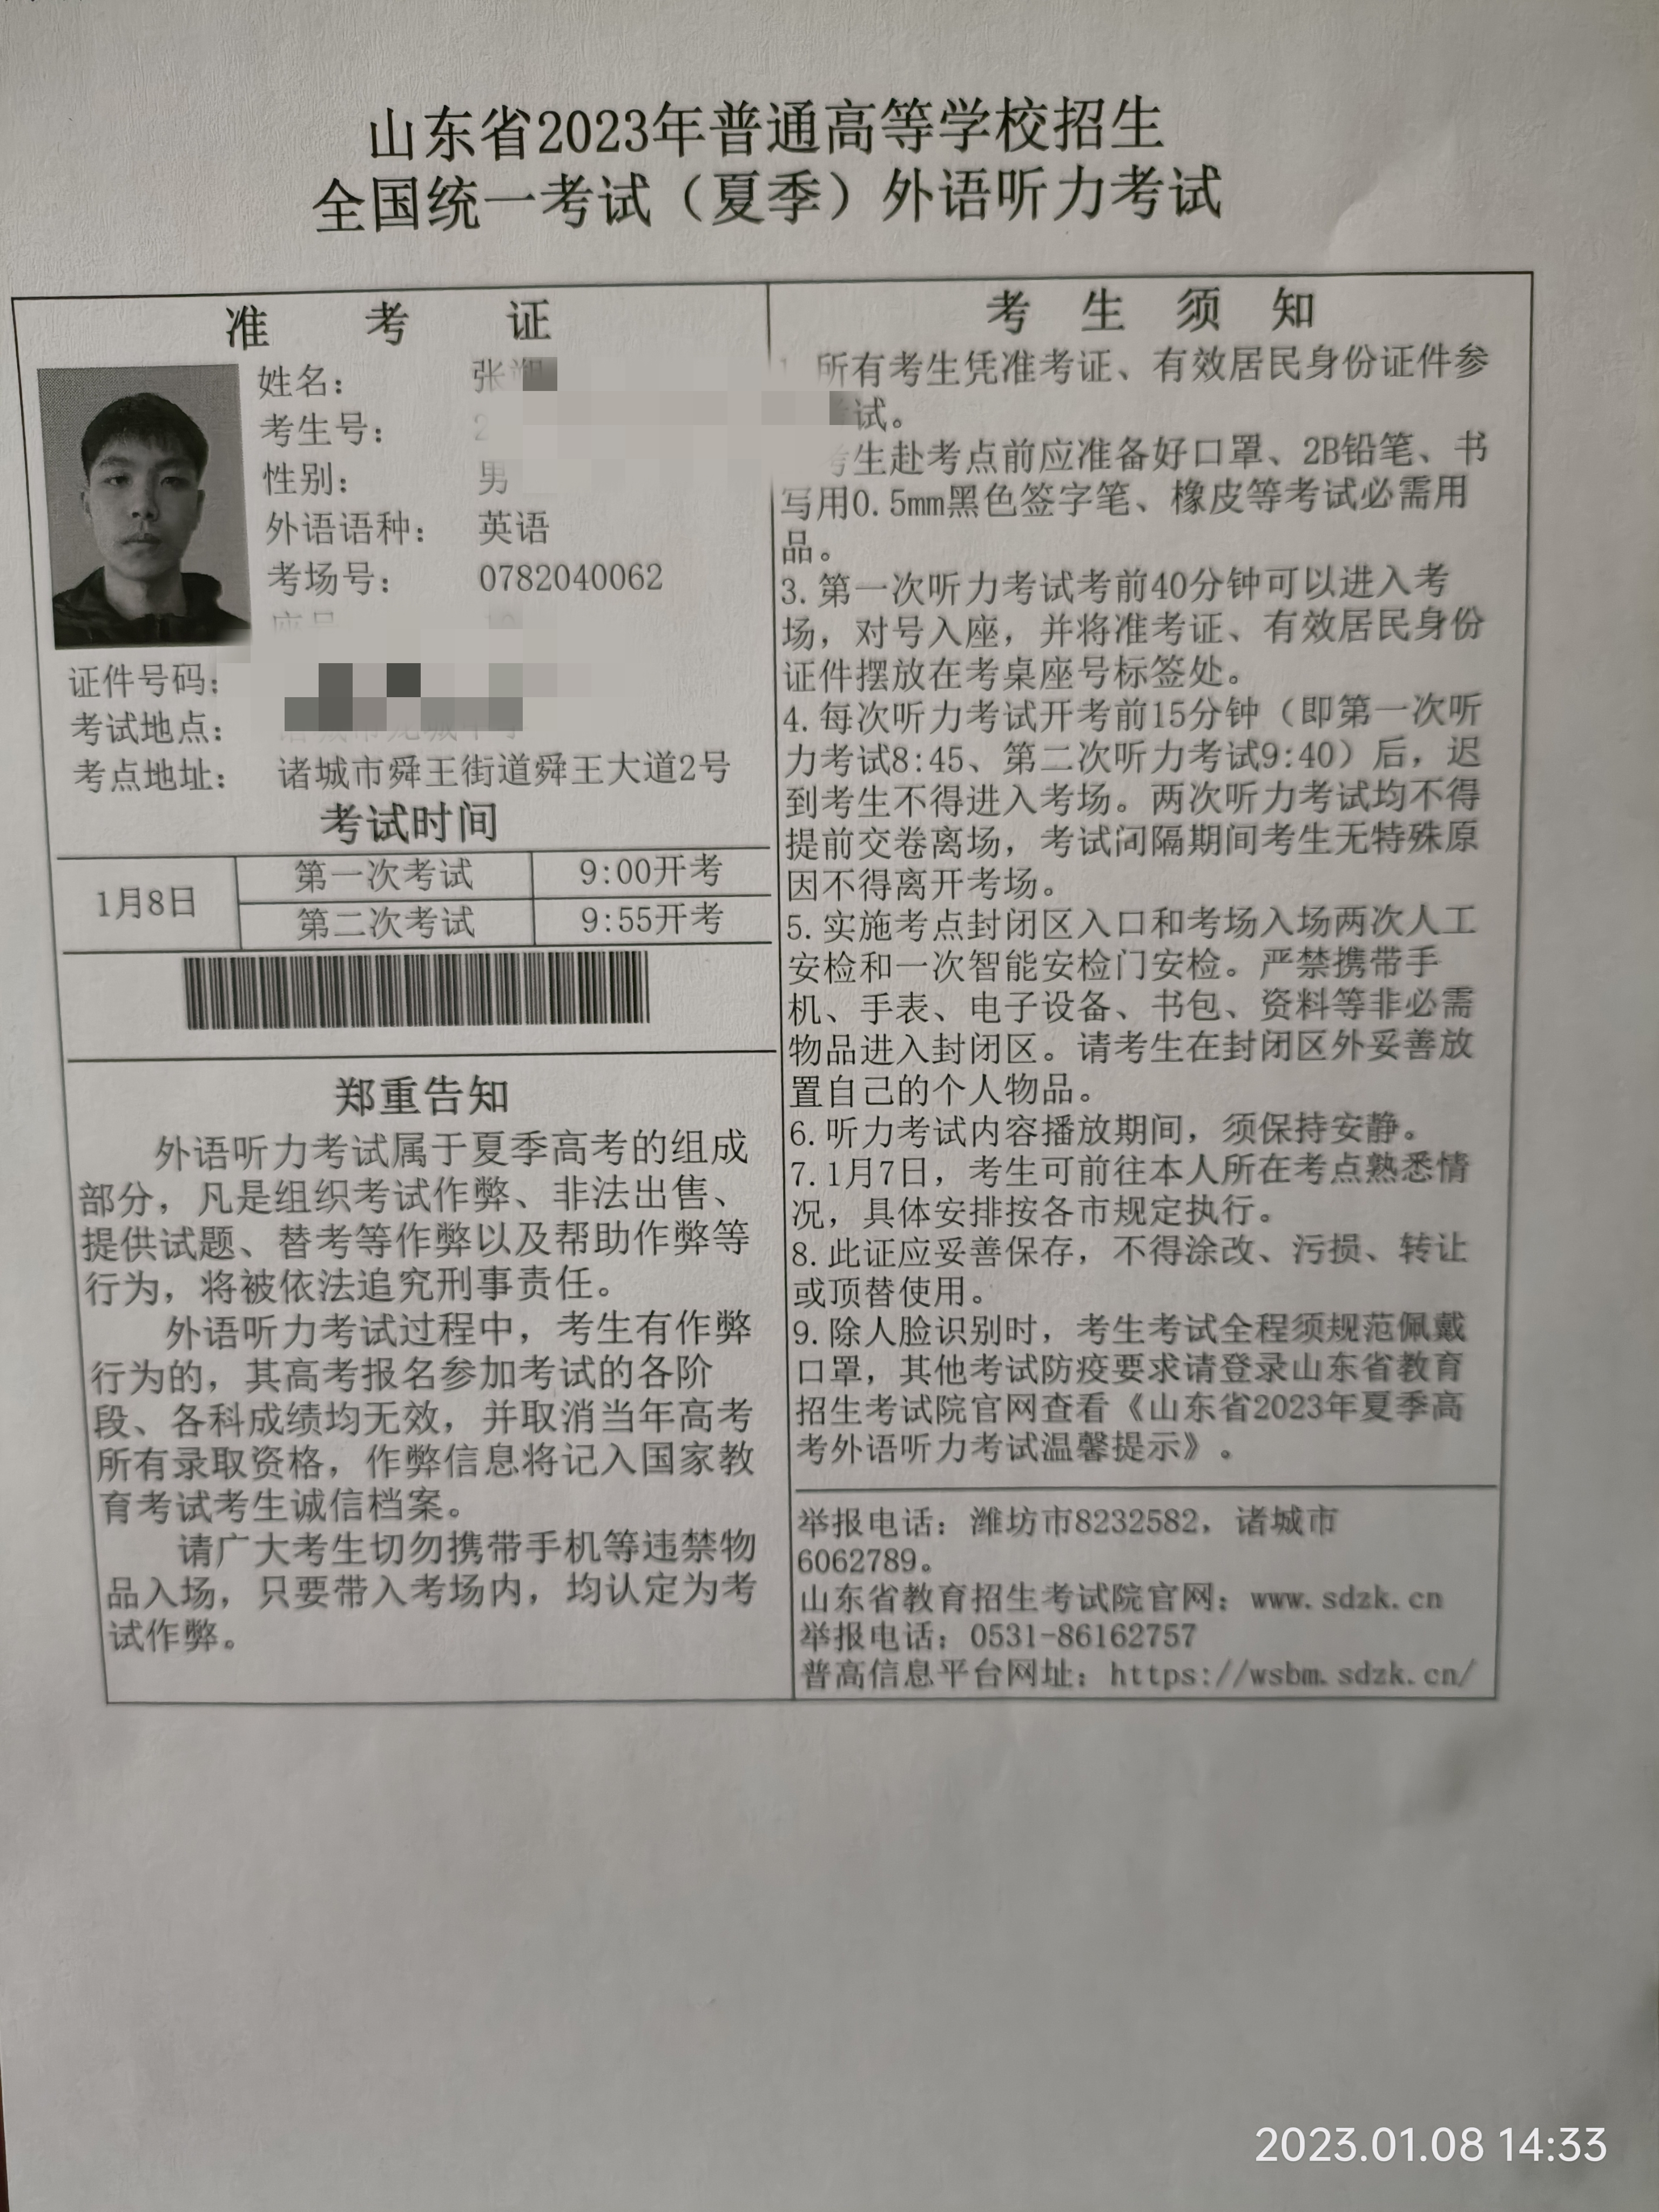 山东省2023年普通高等学校招生
全国统一考试（夏季）外语听力考试
准 考 证
姓名： 张
考生号： 2
性别： 男
外语语种： 英语
考场号： 0782040062
证件号码：
考试地点：
考点地址： 诸城市舜王街道舜王大道2号
考试时间
1月8日
第一次考试 9:00开考
第二次考试 9:55开考
郑重告知
外语听力考试属于夏季高考的组成
部分，凡是组织考试作弊、非法出售、
提供试题、替考等作弊以及帮助作弊等
行为，将被依法追究刑事责任。
外语听力考试过程中，考生有作弊
行为的，其高考报名参加考试的各阶
段、各科成绩均无效，并取消当年高考
所有录取资格，作弊信息将记入国家教
育考试考生诚信档案。
请广大考生切勿携带手机等违禁物
品入场，只要带入考场内，均认定为考
试作弊。
考 生 须 知
所有考生凭准考证、有效居民身份证件参
试。
考生赴考点前应准备好口罩、2B铅笔、书
写用0.5mm黑色签字笔、橡皮等考试必需用
品。
3.第一次听力考试考前40分钟可以进入考
场，对号入座，并将准考证、有效居民身份
证件摆放在考桌座号标签处。
4.每次听力考试开考前15分钟（即第一次听
力考试8:45、第二次听力考试9:40）后，迟
到考生不得进入考场。两次听力考试均不得
提前交卷离场，考试间隔期间考生无特殊原
因不得离开考场。
5.实施考点封闭区入口和考场入场两次人工
安检和一次智能安检门安检。严禁携带手
机、手表、电子设备、书包、资料等非必需
物品进入封闭区。请考生在封闭区外妥善放
置自己的个人物品。
6.听力考试内容播放期间，须保持安静。
7.1月7日，考生可前往本人所在考点熟悉情
况，具体安排按各市规定执行。
8.此证应妥善保存，不得涂改、污损、转让
或顶替使用。
9.除人脸识别时，考生考试全程须规范佩戴
口罩，其他考试防疫要求请登录山东省教育
招生考试院官网查看《山东省2023年夏季高
考外语听力考试温馨提示》。
举报电话：潍坊市8232582，诸城市
6062789。
山东省教育招生考试院官网：www.sdzk.cn
举报电话：0531-86162757
普高信息平台网址：https://wsbm.sdzk.cn/
2023.01.08 14:33